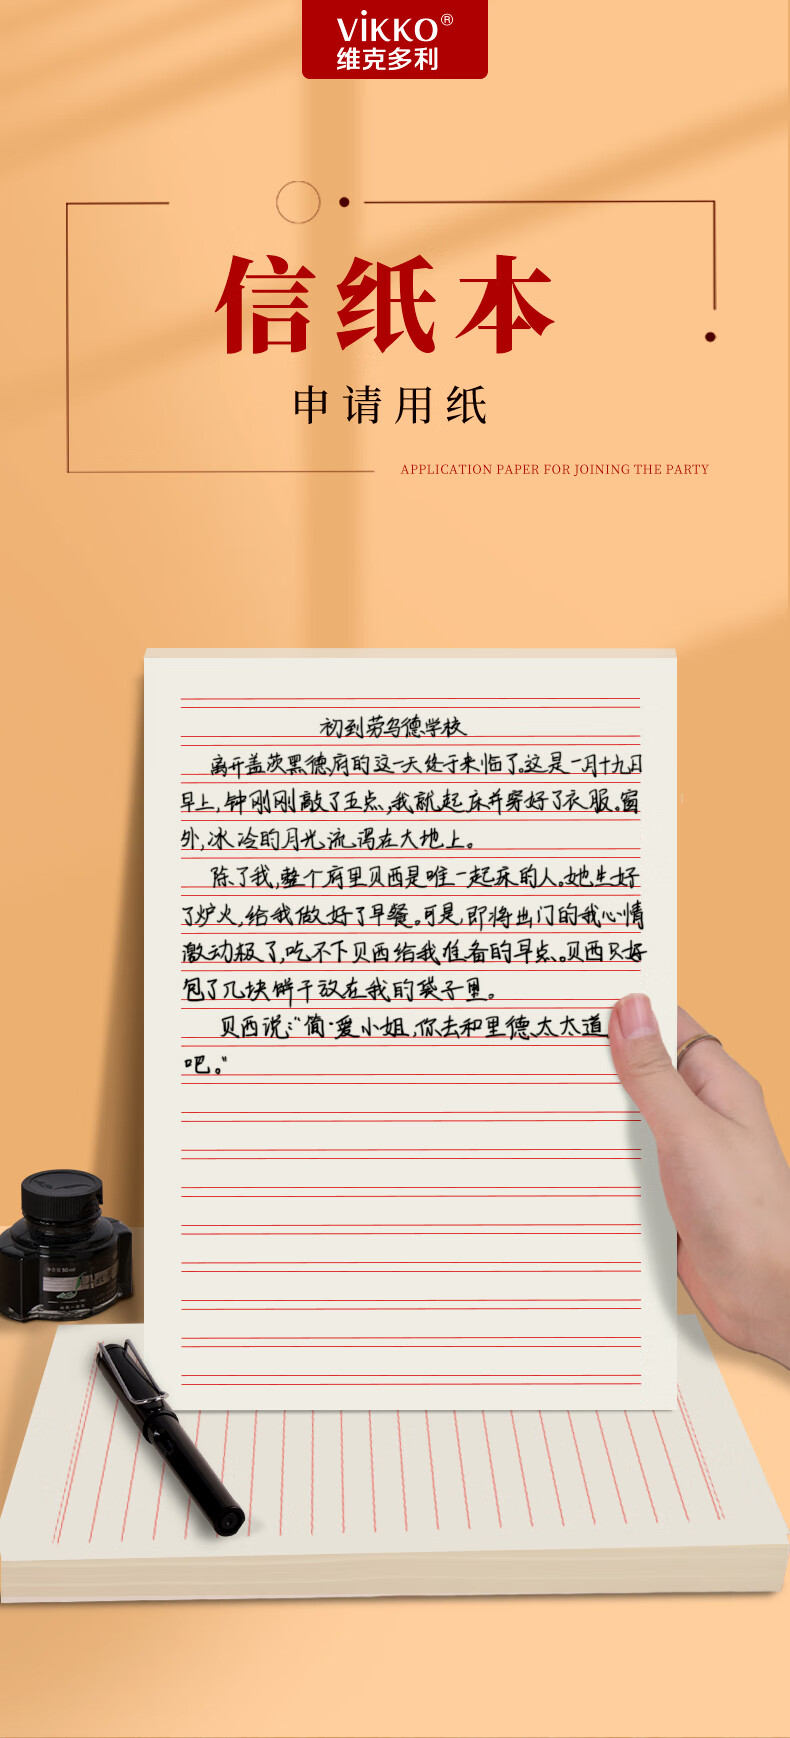 ViKKO®
维克多利
信纸本
申请用纸
APPLICATION PAPER FOR JOINING THE PARTY
初到劳乌德学校
离开盖茨黑德府的这一天终于来临了。这是一月十九日
早上,钟刚刚敲了五点,我就起床并穿好了衣服。窗
外,冰冷的月光流泻在大地上。
除了我,整个府里贝西是唯一起床的人。她生好
了炉火,给我做好了早餐。可是,即将出门的我心情
激动极了,吃不下贝西给我准备的早点。贝西只好
包了几块饼干放在我的袋子里。
贝西说:“简·爱小姐,你去和里德太太道
吧。”
50ml